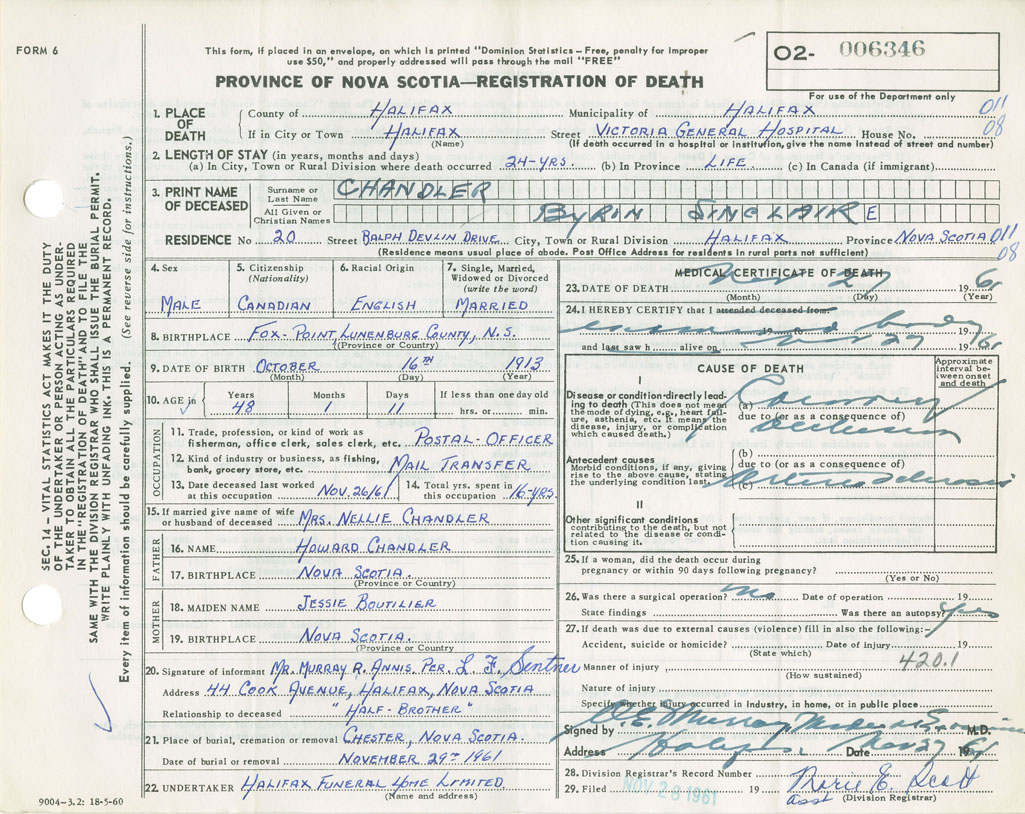 FORM 6
This form, if placed in an envelope, on which is printed "Dominion Statistics – Free, penalty for improper
use $50," and properly addressed will pass through the mail "FREE"
O2- 006346
PROVINCE OF NOVA SCOTIA—REGISTRATION OF DEATH
For use of the Department only
1. PLACE OF DEATH
County of HALIFAX Municipality of HALIFAX 011
If in City or Town HALIFAX Street VICTORIA GENERAL HOSPITAL House No. 08
(Name) (If death occurred in a hospital or institution, give the name instead of street and number)
2. LENGTH OF STAY (in years, months and days)
(a) In City, Town or Rural Division where death occurred 24-YRS. (b) In Province LIFE. (c) In Canada (if immigrant)
3. PRINT NAME OF DECEASED
Surname or Last Name CHANDLER
All Given or Christian Names BYRIN SINCLAIRE
RESIDENCE No 20 Street RALPH DEVLIN DRIVE. City, Town or Rural Division HALIFAX Province NOVA SCOTIA 011
(Residence means usual place of abode. Post Office Address for residents in rural parts not sufficient) 08
4. Sex
MALE
5. Citizenship
(Nationality)
CANADIAN
6. Racial Origin
ENGLISH
7. Single, Married,
Widowed or Divorced
(write the word)
MARRIED
8. BIRTHPLACE FOX-POINT, LUNENBURG COUNTY, N.S.
(Province or Country)
9. DATE OF BIRTH OCTOBER 16TH 1913
(Month) (Day) (Year)
10. AGE in Years Months Days If less than one day old
48 1 11 hrs. or min.
OCCUPATION
11. Trade, profession, or kind of work as
fisherman, office clerk, sales clerk, etc. POSTAL-OFFICER
12. Kind of industry or business, as fishing,
bank, grocery store, etc. MAIL TRANSFER
13. Date deceased last worked
at this occupation NOV. 26/61
14. Total yrs. spent in
this occupation 16-YRS.
15. If married give name of wife
or husband of deceased MRS. NELLIE CHANDLER
FATHER
16. NAME HOWARD CHANDLER
17. BIRTHPLACE NOVA SCOTIA.
(Province or Country)
MOTHER
18. MAIDEN NAME JESSIE BOUTILIER
19. BIRTHPLACE NOVA SCOTIA.
(Province or Country)
20. Signature of informant MR. MURRAY R. ANNIS. PER. L. F. Sentner
Address 44 COOK AVENUE, HALIFAX, NOVA SCOTIA
Relationship to deceased "HALF-BROTHER"
21. Place of burial, cremation or removal CHESTER, NOVA SCOTIA.
Date of burial or removal NOVEMBER 29TH 1961
22. UNDERTAKER HALIFAX FUNERAL HOME LIMITED.
(Name and address)
MEDICAL CERTIFICATE OF DEATH
23. DATE OF DEATH Nov 27 1961
(Month) (Day) (Year)
24. I HEREBY CERTIFY that I attended deceased from:
examined body 19 to 19
and last saw h alive on Nov 27 1961
CAUSE OF DEATH
Approximate
interval be-
tween onset
and death
I
Disease or condition directly lead-
ing to death (This does not mean
the mode of dying, e.g., heart fail-
ure, asthenia, etc. It means the
disease, injury, or complication
which caused death.)
(a) Coronary
due to (or as a consequence of)
Occlusion
Antecedent causes
Morbid conditions, if any, giving
rise to the above cause, stating
the underlying condition last.
(b)
due to (or as a consequence of)
(c) Arteriosclerosis
II
Other significant conditions
contributing to the death, but not
related to the disease or condi-
tion causing it.
25. If a woman, did the death occur during
pregnancy or within 90 days following pregnancy?
(Yes or No)
26. Was there a surgical operation? no Date of operation 19
State findings Was there an autopsy? yes
27. If death was due to external causes (violence) fill in also the following:-
Accident, suicide or homicide? Date of injury 19
(State which) 420.1
Manner of injury
(How sustained)
Nature of injury
Specify whether injury occurred in Industry, in home, or in public place
Signed by O.E. Murray M.D.
Address Halifax Date Nov 27 1961
28. Division Registrar's Record Number
29. Filed NOV 28 1961 19 E. Scott
asst (Division Registrar)
SEC. 14 – VITAL STATISTICS ACT MAKES IT THE DUTY
OF THE UNDERTAKER OR PERSON ACTING AS UNDER-
TAKER TO OBTAIN ALL THE PARTICULARS REQUIRED
IN THE "REGISTRATION OF DEATH" AND TO FILE THE
SAME WITH THE DIVISION REGISTRAR WHO SHALL ISSUE THE BURIAL PERMIT.
WRITE PLAINLY WITH UNFADING INK. THIS IS A PERMANENT RECORD.
Every item of information should be carefully supplied. (See reverse side for instructions.)
9004-3.2: 18-5-60